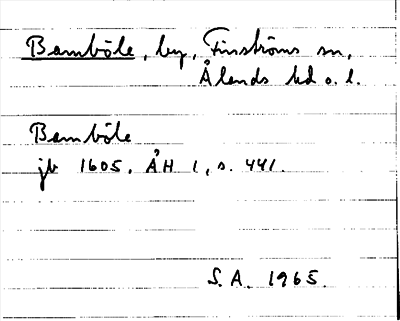 Bamböle, by, Finströms sn,
Ålands hd o. l.
Bamböle
jb 1605. ÅH 1, s. 441.
S.A. 1965.